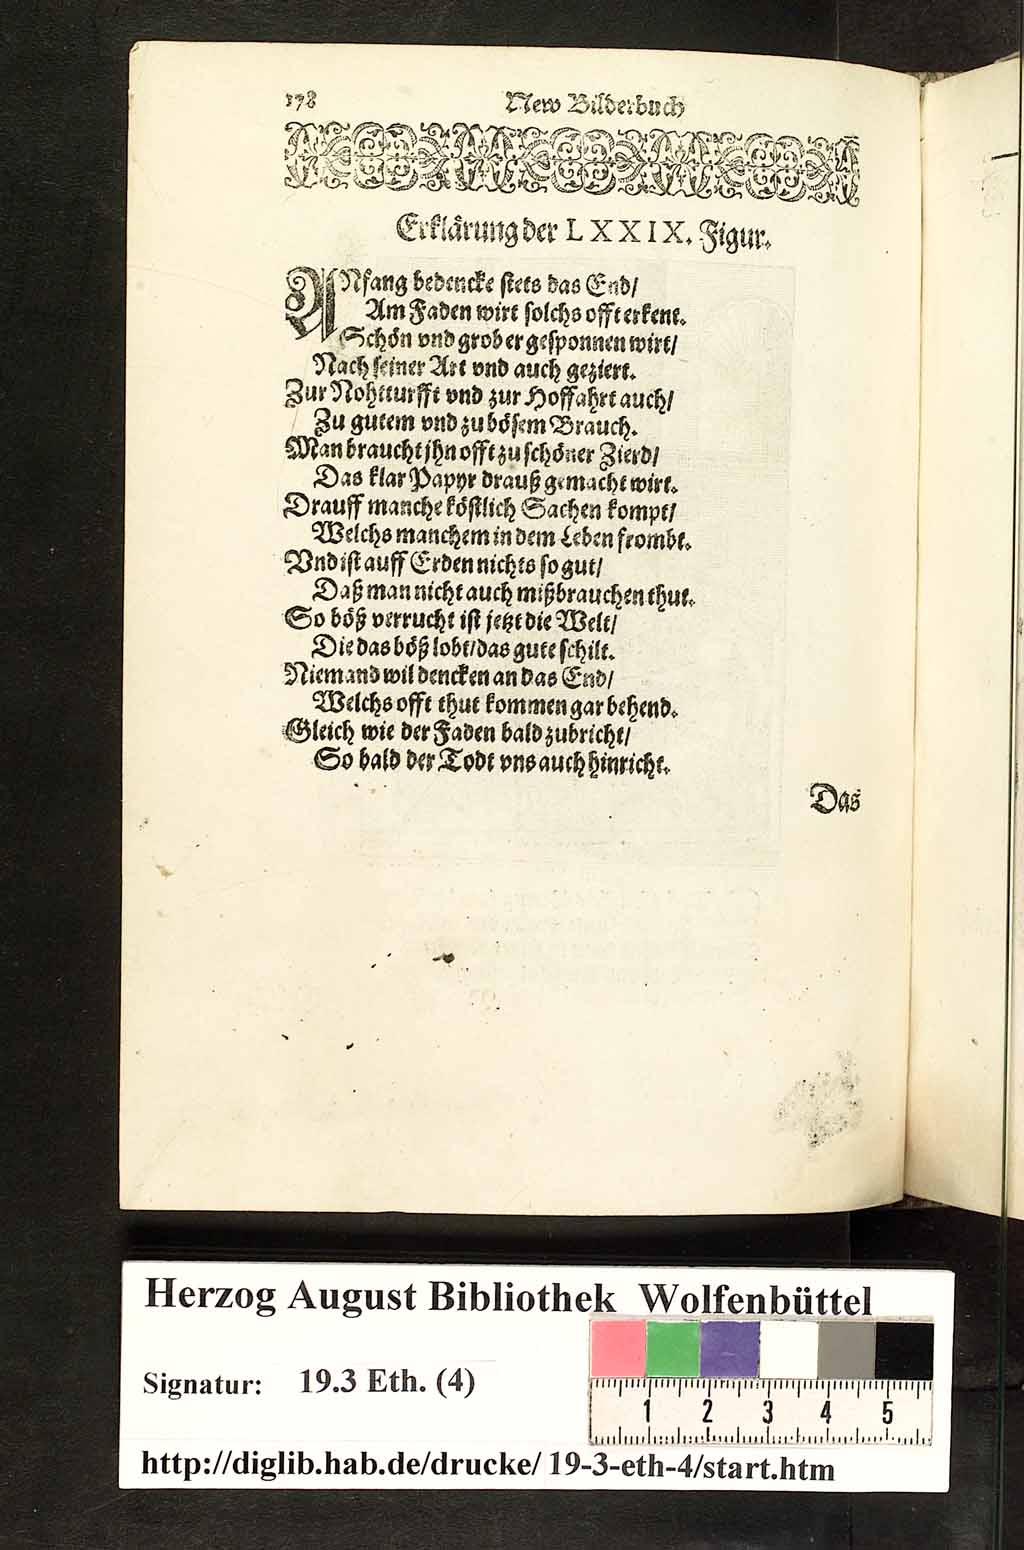 178
New Bilderbuch
Erklärung der LXXIX. Figur.
ANfang bedencke stets das End/
Am Faden wirt solchs offt erkent.
Schön vnd grob er gesponnen wirt/
Nach seiner Art vnd auch geziert.
Zur Nohtturfft vnd zur Hoffahrt auch/
Zu gutem vnd zu bösem Brauch.
Man braucht jhn offt zu schöner Zierd/
Das klar Papyr drauß gemacht wirt.
Drauff manche köstlich Sachen kompt/
Welchs manchem in dem Leben frombt.
Vnd ist auff Erden nichts so gut/
Daß man nicht auch mißbrauchen thut.
So böß verrucht ist jetzt die Welt/
Die das böß lobt/das gute schilt.
Niemand wil dencken an das End/
Welchs offt thut kommen gar behend.
Gleich wie der Faden bald zubricht/
So bald der Todt vns auch hinricht.
Das
Herzog August Bibliothek Wolfenbüttel
Signatur: 19.3 Eth. (4)
1 2 3 4 5
http://diglib.hab.de/drucke/19-3-eth-4/start.htm